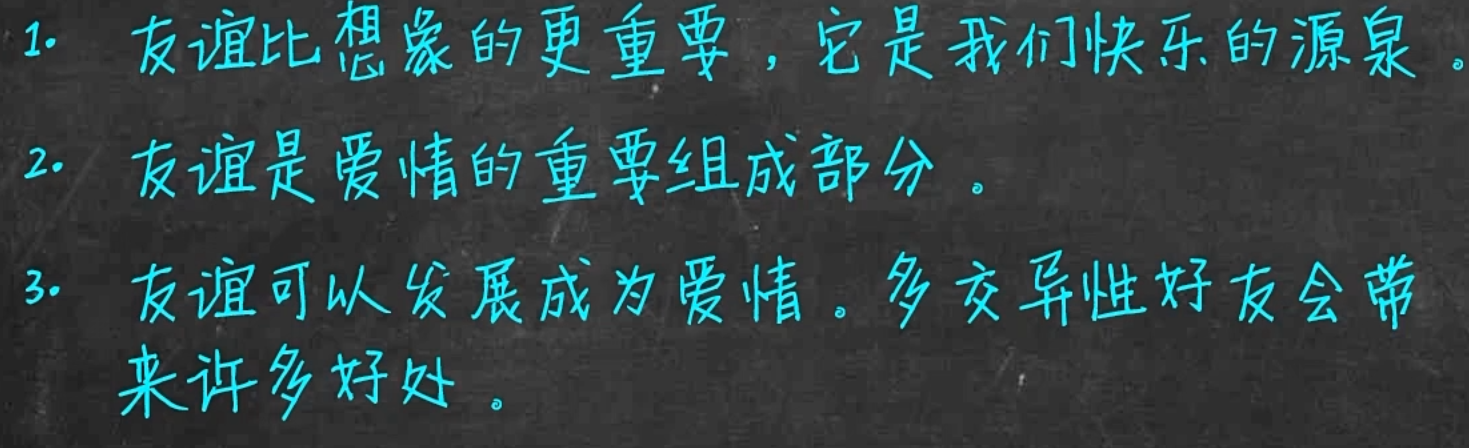 1. 友谊比想象的更重要，它是我们快乐的源泉。
2. 友谊是爱情的重要组成部分。
3. 友谊可以发展成为爱情。多交异性好友会带
来许多好处。